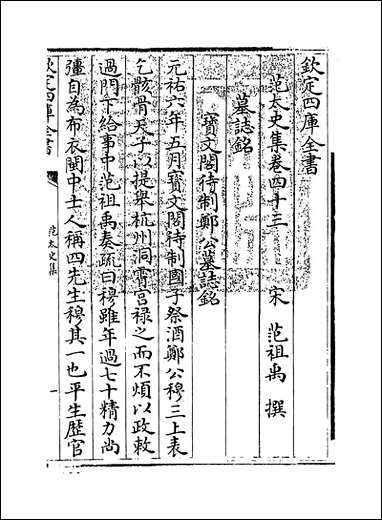 欽定四庫全書
范太史集卷四十三
宋 范祖禹 撰
墓誌銘
寶文閣待制鄭公墓誌銘
元祐六年五月寶文閣待制國子祭酒鄭公穆三上表
乞骸骨天子以提舉杭州洞霄宮祿之而不煩以政敕
過門下給事中范祖禹奏疏曰穆雖年過七十精力尚
彊自為布衣閩中士人稱四先生穆其一也平生歴官
欽定四庫全書
范太史集
一